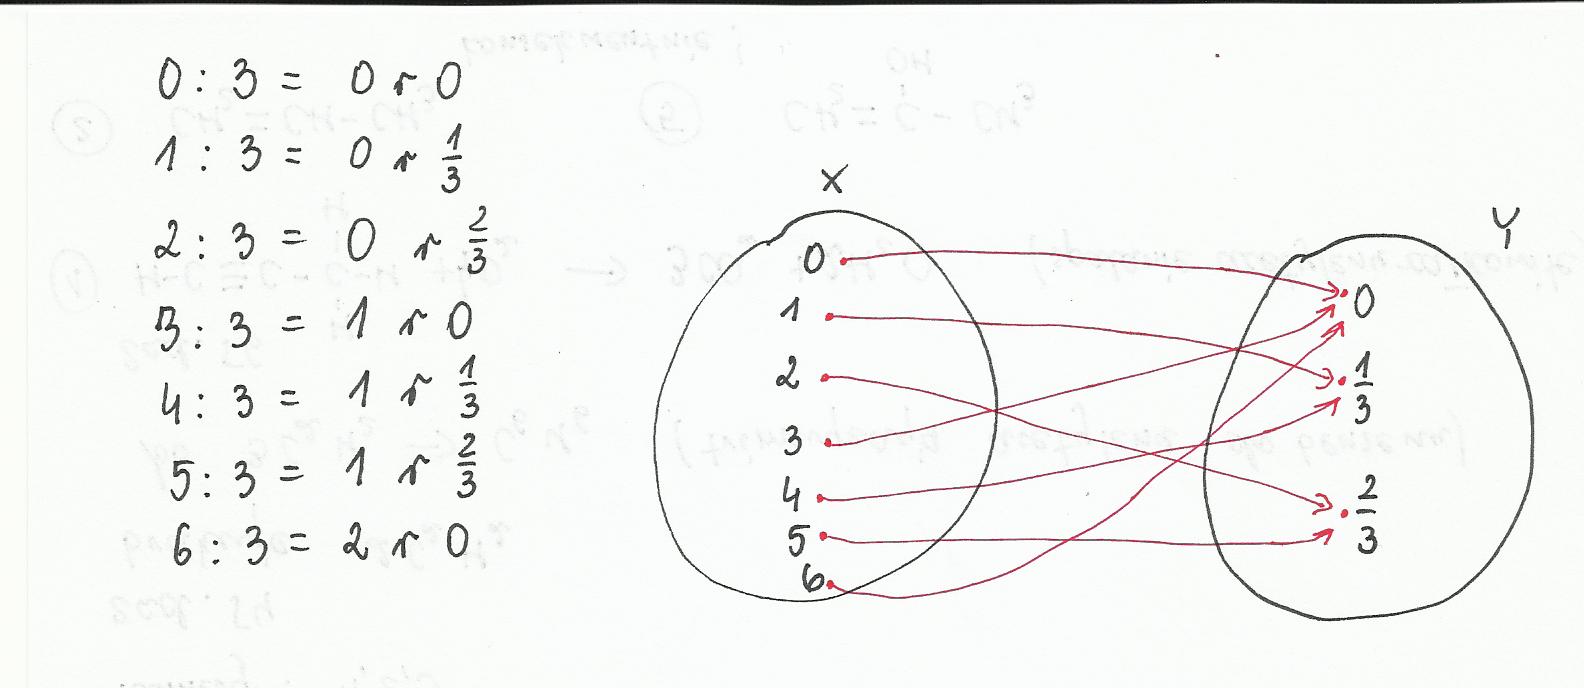 0 : 3 = 0 r 0
1 : 3 = 0 r 1/3
2 : 3 = 0 r 2/3
3 : 3 = 1 r 0
4 : 3 = 1 r 1/3
5 : 3 = 1 r 2/3
6 : 3 = 2 r 0
X
0
1
2
3
4
5
6
Y
0
1/3
2/3